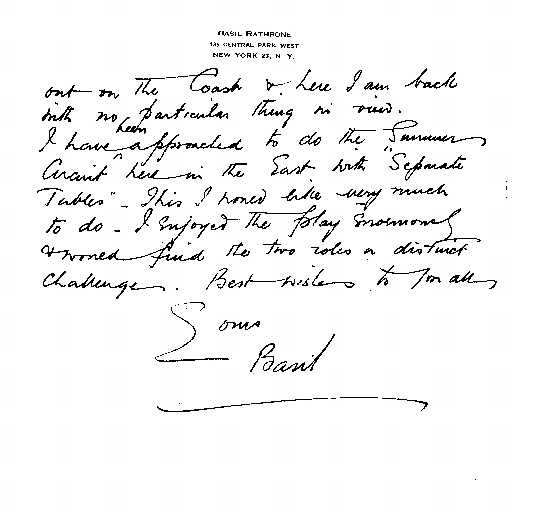 BASIL RATHBONE
135 CENTRAL PARK WEST
NEW YORK 23, N. Y.
out on the Coast & here I am back
with no particular thing in view.
I have been approached to do the Summer
Circuit here in the East with "Separate
Tables" - This I would like very much
to do - I enjoyed the play enormously
& would find the two roles a distinct
challenge. Best wishes to you all,
Yours
Basil